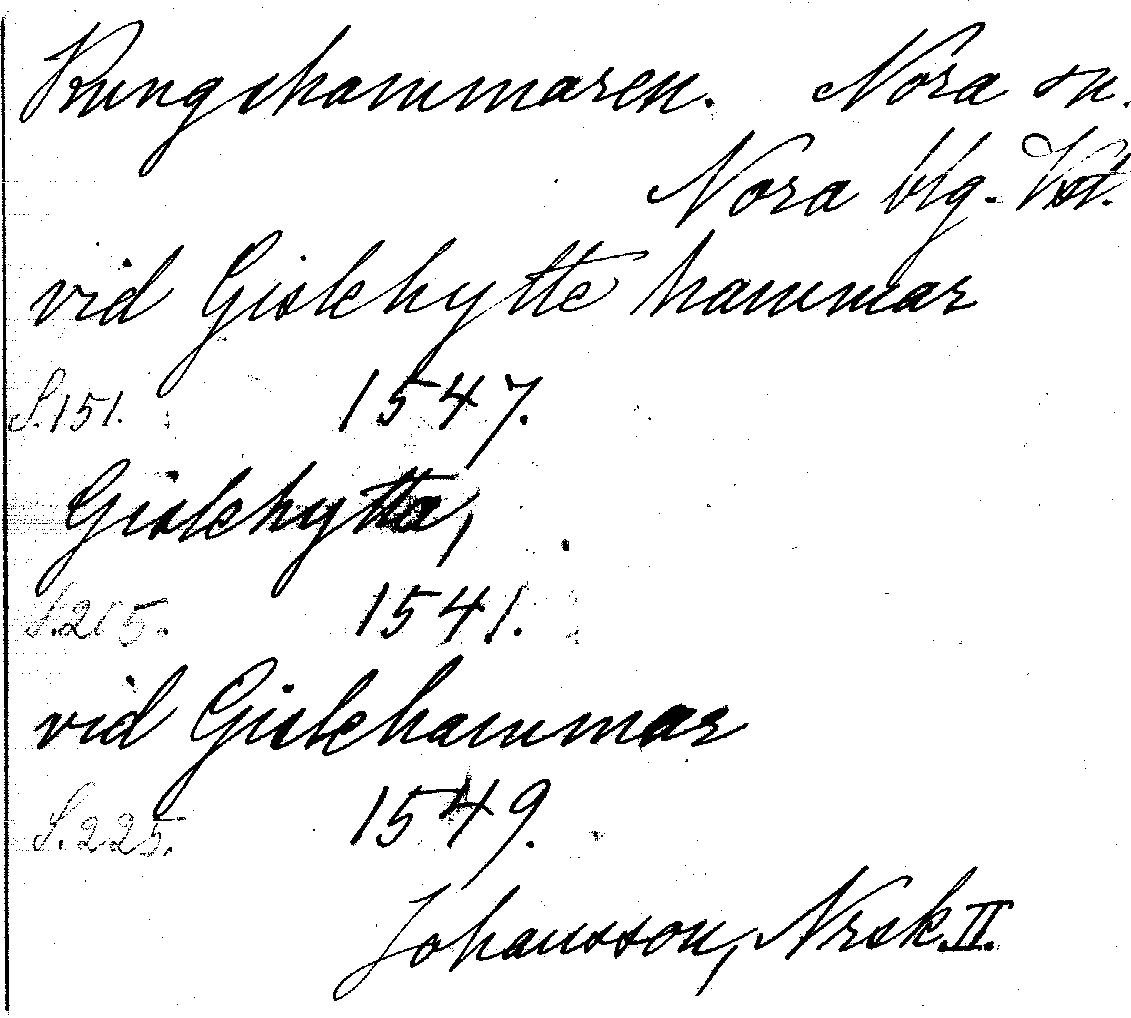 Kungshammaren. Nora sn.
Nora blg. Vstm.
vid Gislehytte hammar
S.151. 1547.
Gislehytta,
S.215. 1541.
vid Gislehammar
S.225. 1549.
Johansson, Nrsk II.